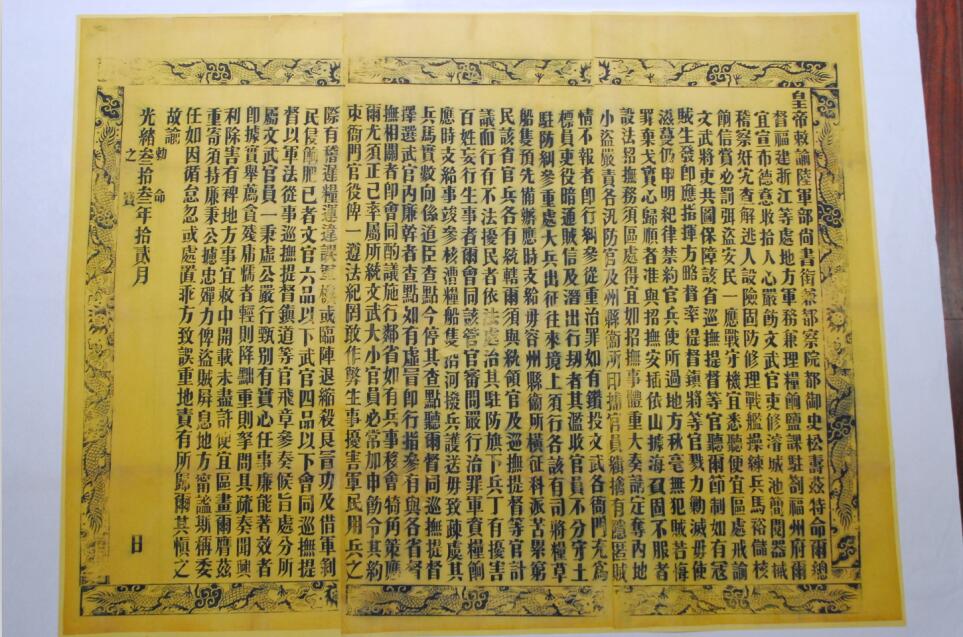 皇帝敕諭陸軍部尚書銜兼都察院都御史松壽茲特命爾總
督福建浙江等處地方軍務兼理糧餉鹽課駐劄福州府爾
宜宣布德意收拾人心嚴飭文武官吏修濬城池簡閱器械
稽察奸宄查解逃人設險固防修理戰艦操練兵馬裕儲核
餉信賞必罰弭盜安民一應戰守機宜悉聽便宜區處戒諭
文武將吏共圖保障該省巡撫提督等官聽爾節制如有寇
賊生發即應指揮方略督率提督鎮將等官戮力勦滅毋使
滋蔓仍申明紀律禁約官兵使所過地方秋毫無犯賊若悔
罪棄戈實心歸順者准與招撫安插依山據海召固不服者
設法招撫務須區處得宜如招撫事體重大奏請定奪內地
小盜嚴責各汛防官及州縣衛所印捕官員緝擒有隱匿賊
情不報者即行糾參從重治罪如有鑽投文武各衙門充為
標員吏役暗通賊信及潛出行刼者其濫收官員不分守土
駐防綱參重處大兵出征往來境上須行各該有司將糧草
船隻預先備辦應時支給毋容州縣衛所橫征科派苦累
民該省官兵各有統轄爾須與統領官及巡撫提督等官計
議而行有不法擾民者依法處治其駐防旗下兵丁有擾害
百姓妄行生事者爾會同該管官審問嚴行治罪軍資糧餉
應時支給事竣參核漕糧船隻河撥兵護送毋致疎虞其
兵馬實數向係道臣查點今停其查點聽爾督同巡撫提督
擇選武官內廉幹者查點如有虛冒即行指參有與各省督
撫相關者即會同酌議施行鄰省如有兵事移會犄角策應
爾尤須正己率屬所統文武大小官員必當加申飭令其約
束衙門官役俾一遵法紀罔敢作弊生事擾害軍民用兵之
際有稽遲糧運違誤軍機或臨陣退縮殺良冒功及借軍剝
民侵餉肥己者文官六品以下武官四品以下會同巡撫提
督以軍法從事巡撫提督鎮道等官飛章參奏候旨處分所
屬文武官員一秉虛公嚴行甄別有實心任事廉能著效者
即據實舉薦貪殘庸懦者輕則降黜重則拏問具疏奏聞興
利除害有裨地方事宜敕中開載未盡許便宜區畫爾膺茲
重寄須持廉秉公攄忠殫力俾盜賊屏息地方甯謐斯稱委
任如因循怠忽或處置乖方致誤重地責有所歸爾其慎之
故諭
敕命
之寶
光緒叁拾叁年拾貳月 日